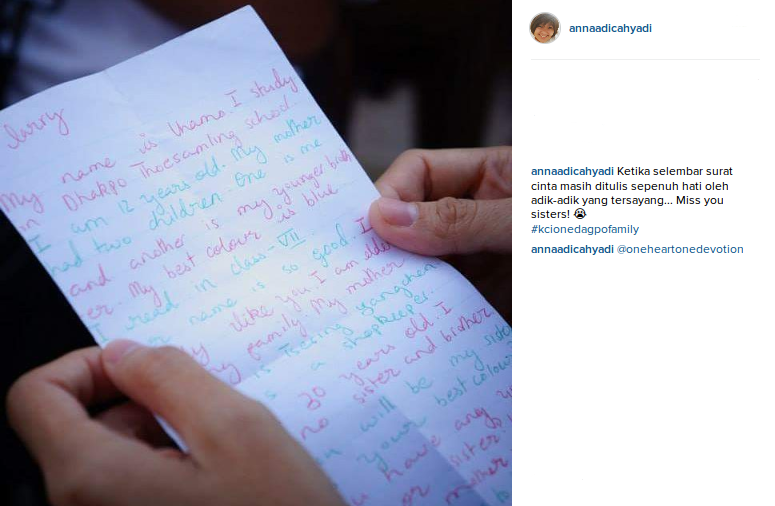 larry
My name is Lhamo. I study
in Dhakpo Thoesamling school
I am 12 years old. My mother
had two children. One is me
and another is my younger broth
er. My best colour is blue
I read in class-VII
name is so good. I
like you. I am
family. My mother
is Tsesing yangchen
a shopkeeper.
30 years old. I
no sister and brother
u will be my siste
your best colour
u have any
or sister.
or mother
annaadicahyadi
annaadicahyadi Ketika selembar surat
cinta masih ditulis sepenuh hati oleh
adik-adik yang tersayang... Miss you
sisters! 😭
#kcionedagpofamily
annaadicahyadi @oneheartonedevotion